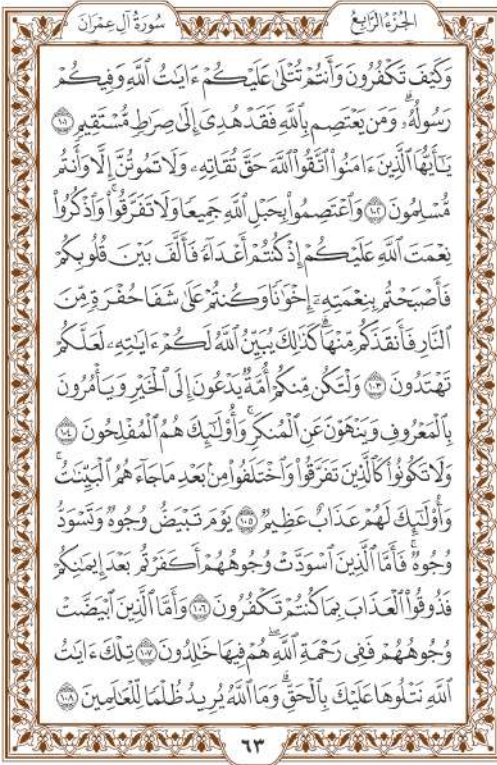 الجُزْءُ الرَّابِعُ
سُورَةُ آلِ عِمْرَانَ
وَكَيْفَ تَكْفُرُونَ وَأَنتُمْ تُتْلَىٰ عَلَيْكُمْ ءَايَٰتُ ٱللَّهِ وَفِيكُمْ
رَسُولُهُۥۗ وَمَن يَعْتَصِم بِٱللَّهِ فَقَدْ هُدِىَ إِلَىٰ صِرَٰطٍ مُّسْتَقِيمٍ ١٠١
يَٰٓأَيُّهَا ٱلَّذِينَ ءَامَنُوا۟ ٱتَّقُوا۟ ٱللَّهَ حَقَّ تُقَاتِهِۦ وَلَا تَمُوتُنَّ إِلَّا وَأَنتُم
مُّسْلِمُونَ ١٠٢ وَٱعْتَصِمُوا۟ بِحَبْلِ ٱللَّهِ جَمِيعًا وَلَا تَفَرَّقُوا۟ۚ وَٱذْكُرُوا۟
نِعْمَتَ ٱللَّهِ عَلَيْكُمْ إِذْ كُنتُمْ أَعْدَآءً فَأَلَّفَ بَيْنَ قُلُوبِكُمْ
فَأَصْبَحْتُم بِنِعْمَتِهِۦٓ إِخْوَٰنًا وَكُنتُمْ عَلَىٰ شَفَا حُفْرَةٍ مِّنَ
ٱلنَّارِ فَأَنقَذَكُم مِّنْهَاۗ كَذَٰلِكَ يُبَيِّنُ ٱللَّهُ لَكُمْ ءَايَٰتِهِۦ لَعَلَّكُمْ
تَهْتَدُونَ ١٠٣ وَلْتَكُن مِّنكُمْ أُمَّةٌ يَدْعُونَ إِلَى ٱلْخَيْرِ وَيَأْمُرُونَ
بِٱلْمَعْرُوفِ وَيَنْهَوْنَ عَنِ ٱلْمُنكَرِۚ وَأُو۟لَٰٓئِكَ هُمُ ٱلْمُفْلِحُونَ ١٠٤
وَلَا تَكُونُوا۟ كَٱلَّذِينَ تَفَرَّقُوا۟ وَٱخْتَلَفُوا۟ مِنۢ بَعْدِ مَا جَآءَهُمُ ٱلْبَيِّنَٰتُۚ
وَأُو۟لَٰٓئِكَ لَهُمْ عَذَابٌ عَظِيمٌ ١٠٥ يَوْمَ تَبْيَضُّ وُجُوهٌ وَتَسْوَدُّ
وُجُوهٌۚ فَأَمَّا ٱلَّذِينَ ٱسْوَدَّتْ وُجُوهُهُمْ أَكَفَرْتُم بَعْدَ إِيمَٰنِكُمْ
فَذُوقُوا۟ ٱلْعَذَابَ بِمَا كُنتُمْ تَكْفُرُونَ ١٠٦ وَأَمَّا ٱلَّذِينَ ٱبْيَضَّتْ
وُجُوهُهُمْ فَفِى رَحْمَةِ ٱللَّهِ هُمْ فِيهَا خَٰلِدُونَ ١٠٧ تِلْكَ ءَايَٰتُ
ٱللَّهِ نَتْلُوهَا عَلَيْكَ بِٱلْحَقِّۗ وَمَا ٱللَّهُ يُرِيدُ ظُلْمًا لِّلْعَٰلَمِينَ ١٠٨
٦٣